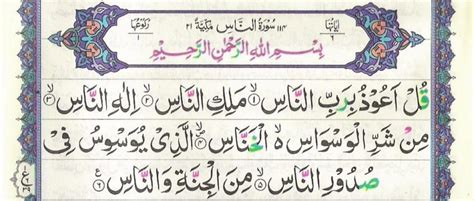 اٰيَاتُهَا ٦ ١١٤ سُوْرَةُ النَّاسِ مَكِّيَّةٌ ٢١ رُكُوْعُهَا ١
بِسْمِ اللّٰهِ الرَّحْمٰنِ الرَّحِيْمِ
قُلْ اَعُوْذُ بِرَبِّ النَّاسِ ۙ﴿١﴾ مَلِكِ النَّاسِ ۙ﴿٢﴾ اِلٰهِ النَّاسِ ۙ﴿٣﴾
مِنْ شَرِّ الْوَسْوَاسِ ۙ۬ الْخَنَّاسِ ۪ۙ﴿٤﴾ الَّذِيْ يُوَسْوِسُ فِيْ
صُدُوْرِ النَّاسِ ۙ﴿٥﴾ مِنَ الْجِنَّةِ وَالنَّاسِ ﴿٦﴾ ع